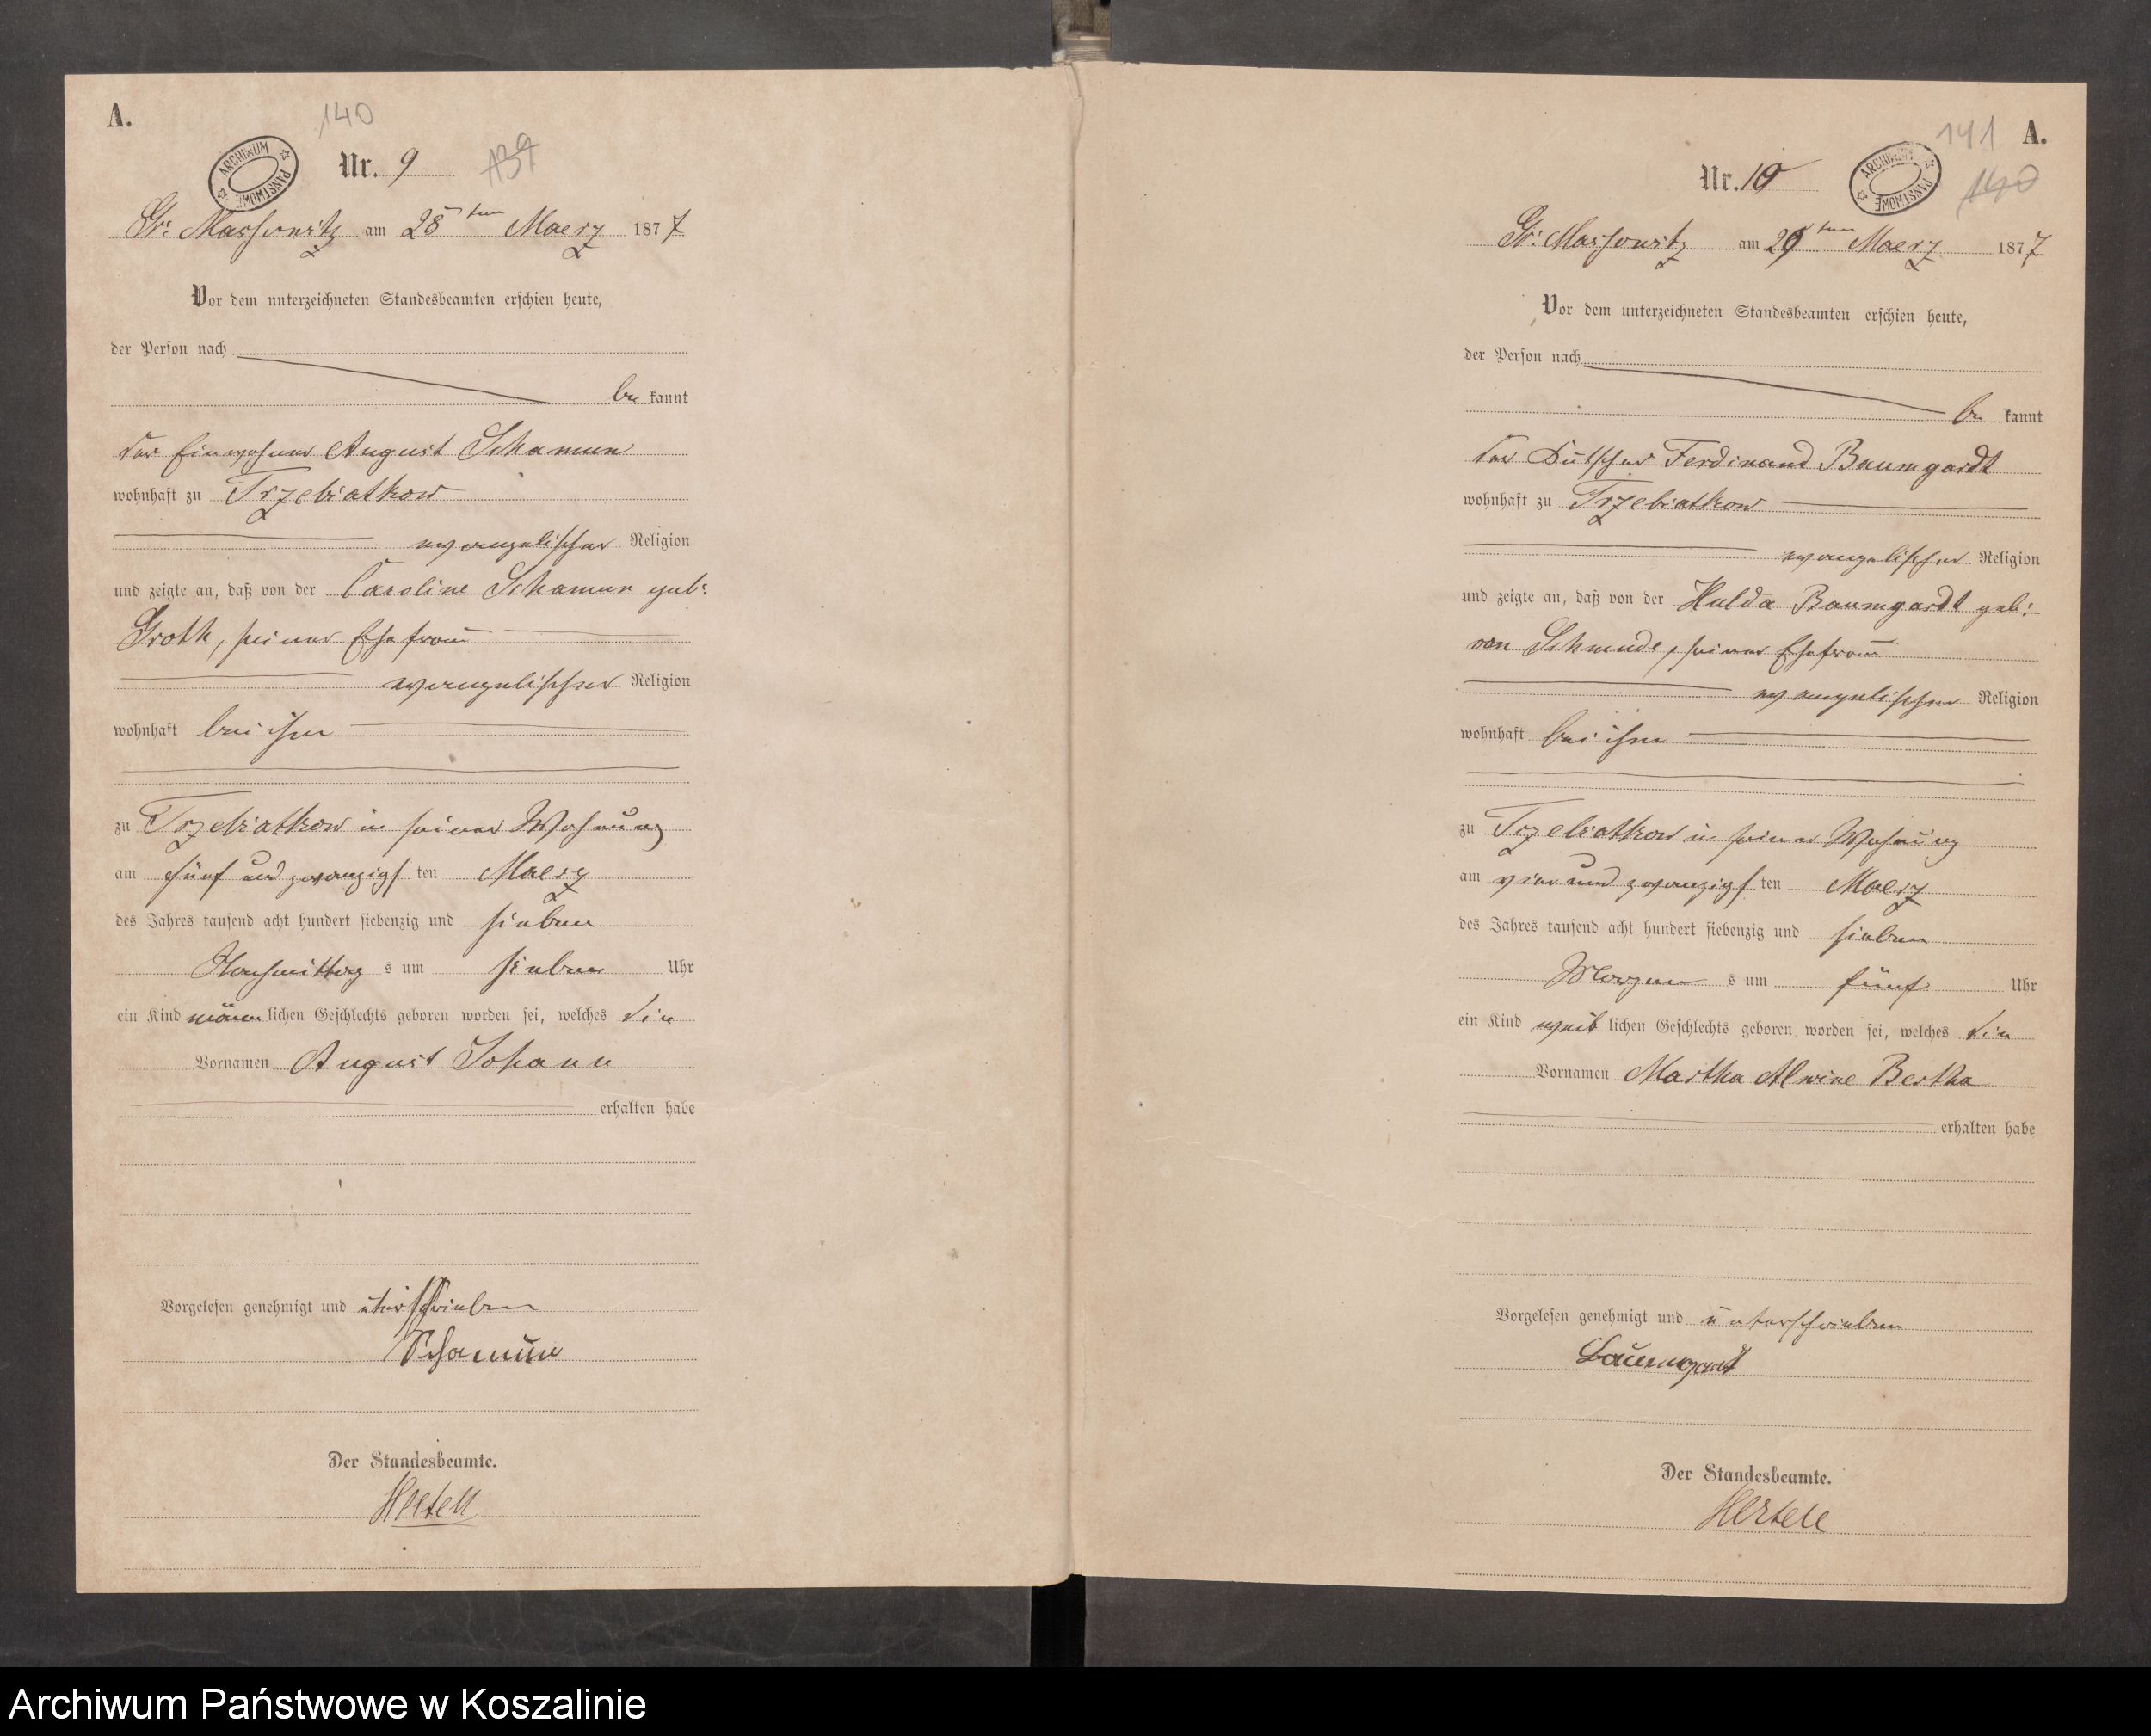 A.
140
Nr. 9
139
ARCHIWUM PAŃSTWOWE
Gr. Massowitz am 28ten Maerz 1877
Vor dem unterzeichneten Standesbeamten erschien heute,
der Person nach
be kannt
der Einwohner August Schamun
wohnhaft zu Trzebiatkow
evangelischer Religion
und zeigte an, daß von der Caroline Schamun geb:
Groth, seiner Ehefrau
evangelischer Religion
wohnhaft bei ihm
zu Trzebiatkow in seiner Wohnung
am fünf und zwanzigs ten Maerz
des Jahres tausend acht hundert siebenzig und sieben
Nachmittag s um sieben Uhr
ein Kind männ lichen Geschlechts geboren worden sei, welches die
Vornamen August Johann
erhalten habe
Vorgelesen genehmigt und unterschrieben
Schamun
Der Standesbeamte.
Hertell
141
A.
Nr. 10
140
ARCHIWUM PAŃSTWOWE
Gr. Massowitz am 29ten Maerz 1877
Vor dem unterzeichneten Standesbeamten erschien heute,
der Person nach
be kannt
der Ferdinand Baumgardt
wohnhaft zu Trzebiatkow
evangelischer Religion
und zeigte an, daß von der Hulda Baumgardt geb:
von Schmude, seiner Ehefrau
evangelischer Religion
wohnhaft bei ihm
zu Trzebiatkow in seiner Wohnung
am vier und zwanzigs ten Maerz
des Jahres tausend acht hundert siebenzig und sieben
Morgen s um fünf Uhr
ein Kind weib lichen Geschlechts geboren worden sei, welches die
Vornamen Martha Alwine Bertha
erhalten habe
Vorgelesen genehmigt und unterschrieben
Baumgardt
Der Standesbeamte.
Hertell
Archiwum Państwowe w Koszalinie